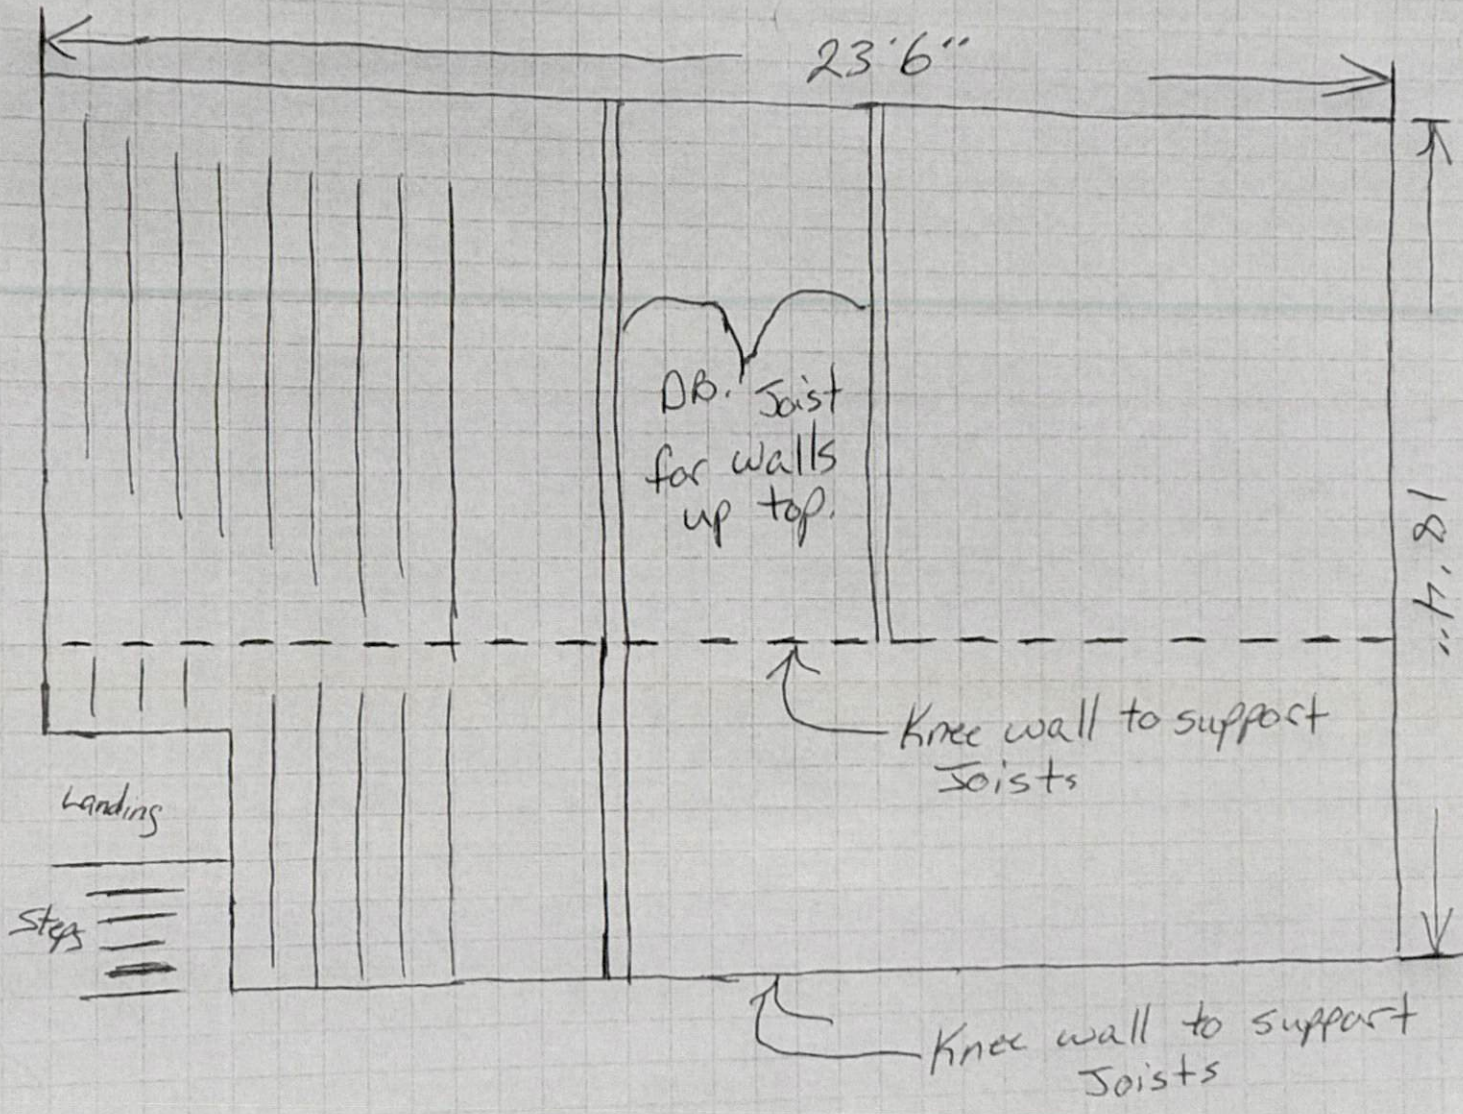 23'6"
DB. Joist
for walls
up top.
18'4"
Knee wall to support
Joists
Landing
Steps
Knee wall to support
Joists